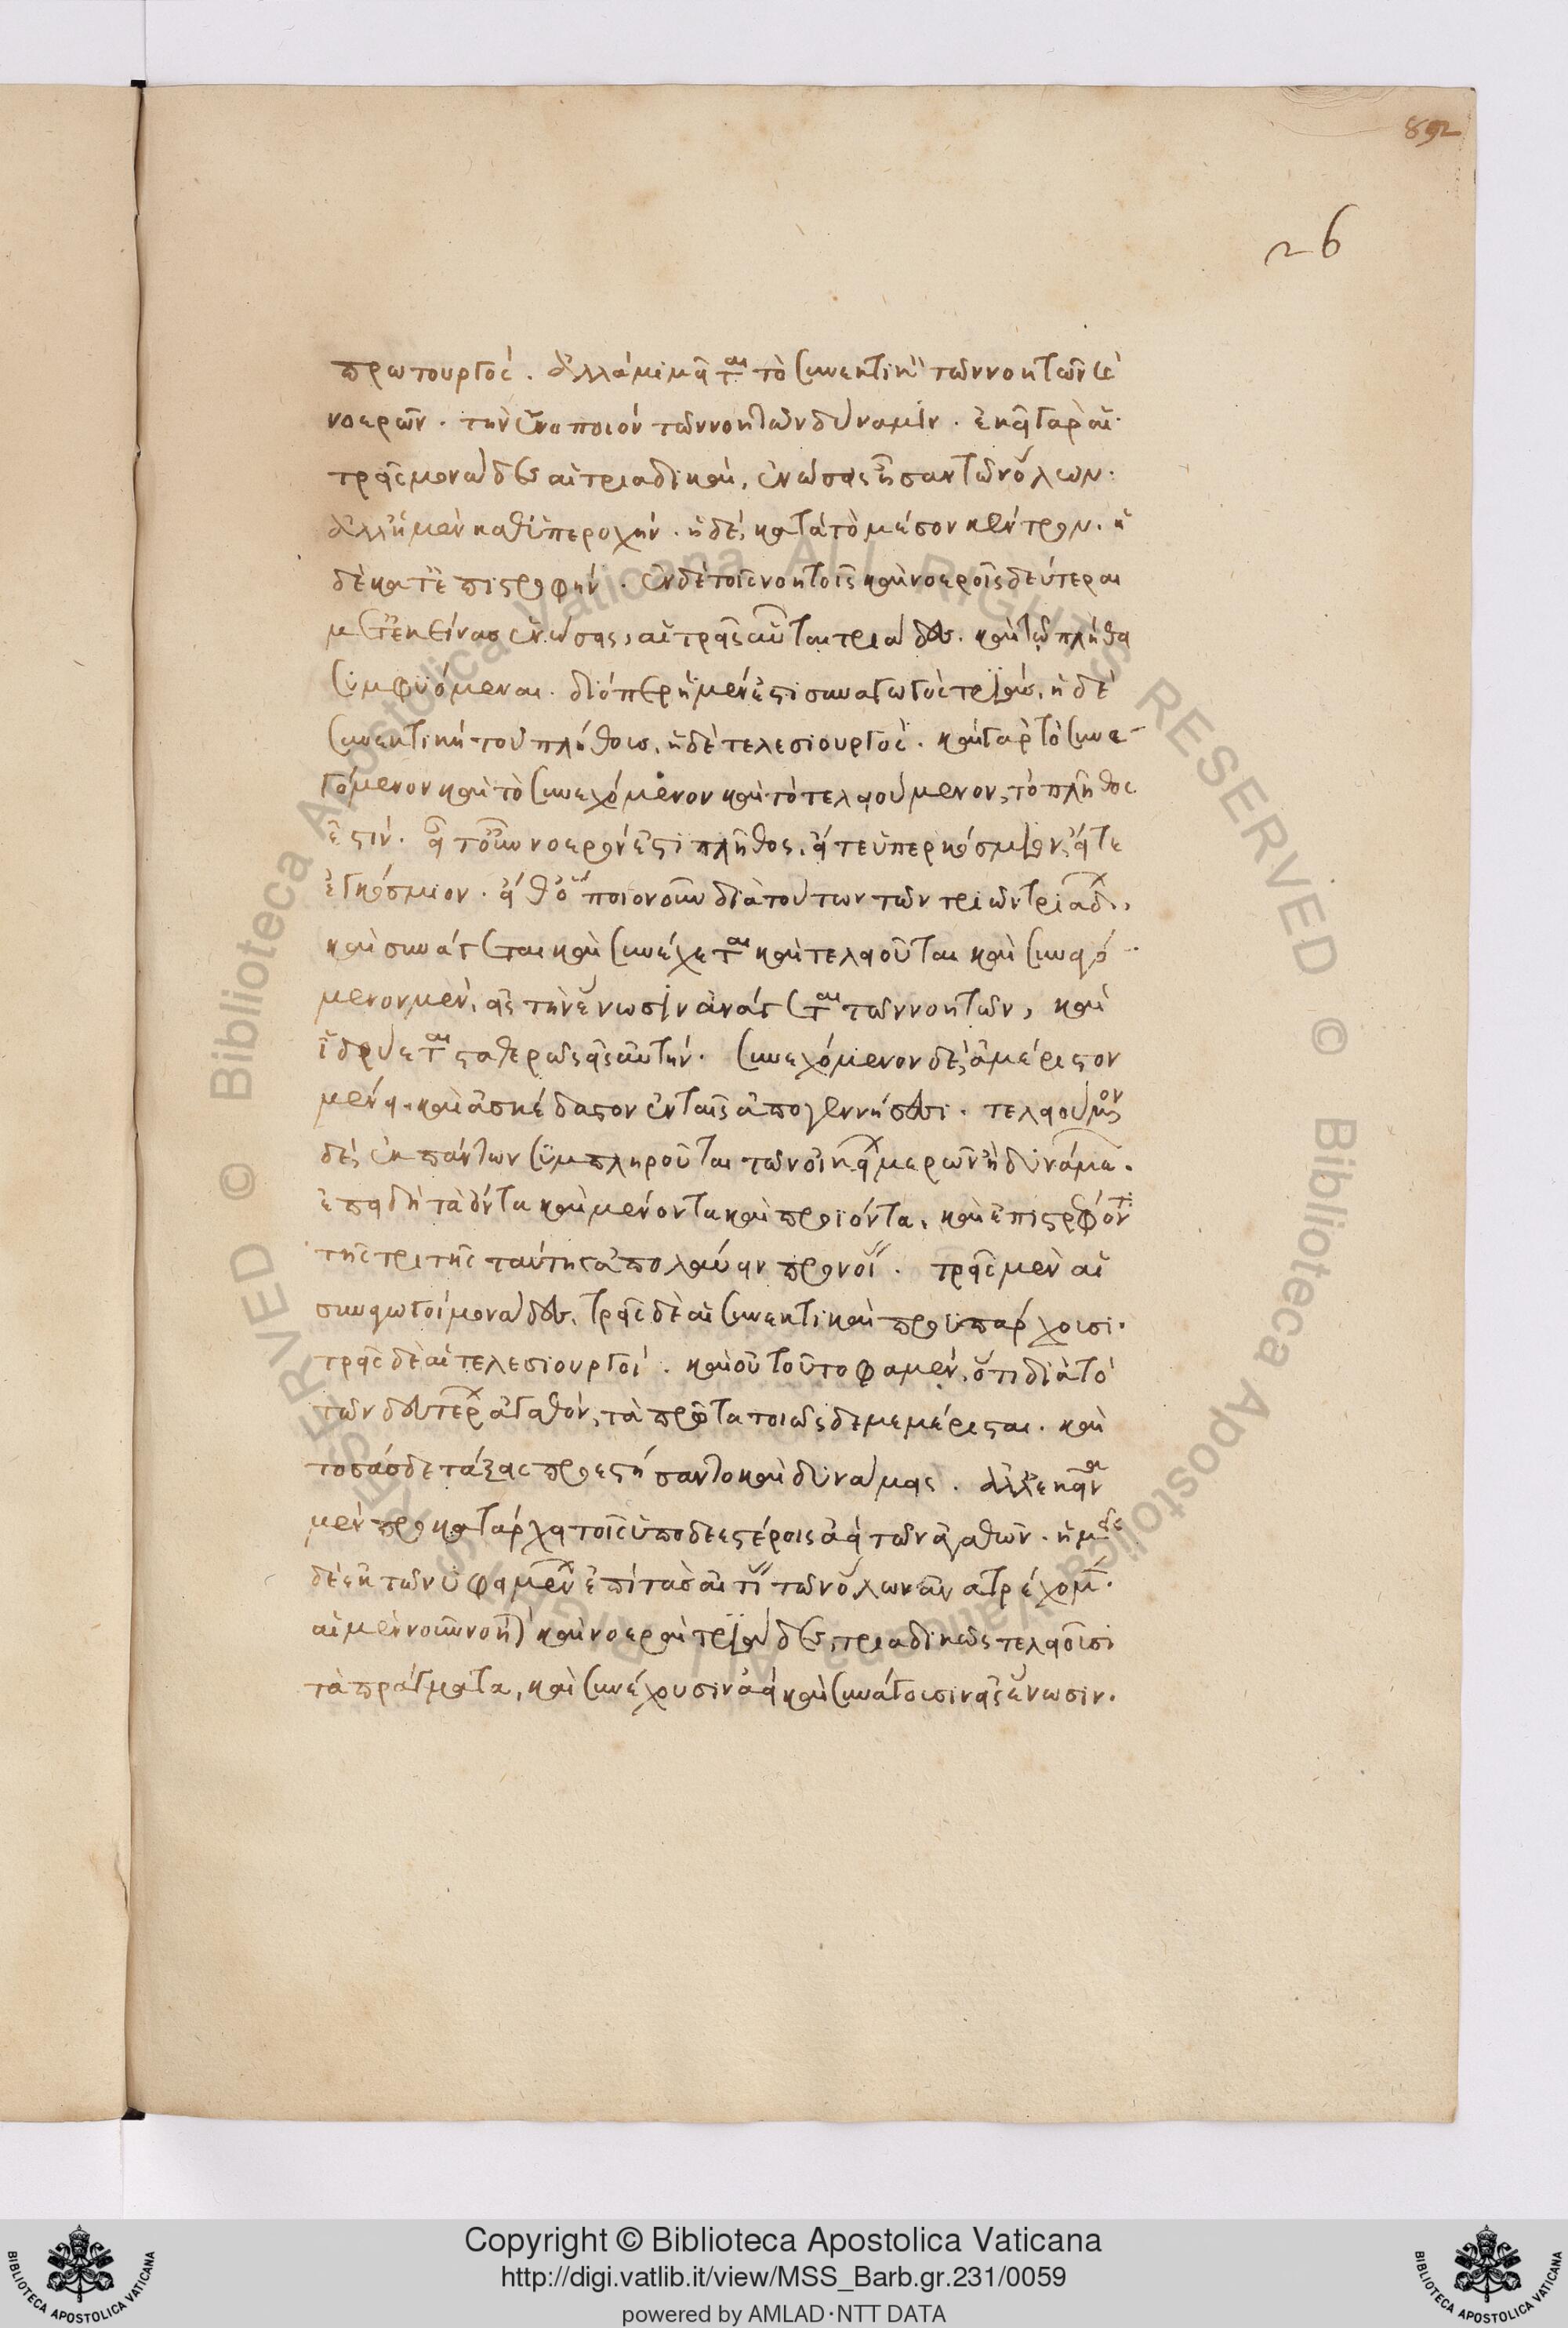 892
26
πρωτουργός. ἀλλὰ μιμεῖται τὸ συνεκτικὸν τῶν νοητῶν καὶ
νοερῶν. τὴν ἑνοποιὸν τῶν νοητῶν δύναμιν. ἐκεῖ γὰρ αἱ
τρεῖς μονάδες αἱ τριαδικαὶ, ἑνώσεις ἦσαν τῶν ὅλων.
ἀλλ' ἡ μὲν καθ' ὑπεροχήν. ἡ δὲ, κατὰ τὸ μέσον κέντρον. ἡ
δὲ κατ' ἐπιστροφήν. ἐν δὲ τοῖς νοητοῖς καὶ νοεροῖς δεύτεραι
μετ' ἐκείνας ἑνώσεις, αἱ τρεῖς αὗται τριάδες. καὶ τῷ πλήθει
συμφυόμεναι. διόπερ ἡ μέν ἐστι συναγωγὸς τριὰς, ἡ δὲ
συνεκτικὴ τοῦ πλήθους, ἡ δὲ τελεσιουργός. καὶ γὰρ τὸ συνα
γόμενον καὶ τὸ συνεχόμενον καὶ τὸ τελειούμενον, τὸ πλῆθος
ἐστίν. εἴ τ' οὖν νοερόν ἐστι πλῆθος, εἴ τε ὑπερκόσμιον, εἴτε
ἐγκόσμιον. εἴθ' ὁποιονοῦν διὰ τούτων τῶν τριῶν τριάδων,
καὶ συνάγεται καὶ συνέχεται καὶ τελειοῦται καὶ συναγό
μενον μὲν, εἰς τὴν ἕνωσιν ἀνάγεται τῶν νοητῶν, καὶ
ἱδρύεται σταθερῶς εἰς αὐτήν. συνεχόμενον δὲ, ἀμέριστον
μένει καὶ ἀσκέδαστον ἐν ταῖς ἀπογεννήσεσι. τελειούμενον
δὲ, ἐκ πάντων συμπληροῦται τῶν οἰκείων μερῶν ἢ δυνάμεων.
ἐπειδὴ τὰ ὄντα καὶ μένοντα καὶ προϊόντα, καὶ ἐπιστρέφοντα
τῆς τριττῆς ταύτης ἀπολαύειν προνοίας. τρεῖς μὲν αἱ
συναγωγοὶ μονάδες, τρεῖς δὲ αἱ συνεκτικαὶ προϋπάρχουσι.
τρεῖς δὲ αἱ τελεσιουργοί. καὶ οὐ τοῦτο φαμὲν, ὅτι διὰ τὸ
τῶν δευτέρων ἀγαθόν, τὰ πρῶτα τοιῶςδε μεμέρισται. καὶ
τοσάσδε τάξεις προεστήσαντο καὶ δυνάμεις. ἀλλ' ἐκεῖναι
μὲν προκατάρχει τοῖς ὑποδεεστέροις ἀεὶ τῶν ἀγαθῶν. ἡμεῖς
δὲ ἐκ τῶν ὑφειμένων ἐπὶ τὰς αἰτίας τῶν ὅλων ἀνατρέχομεν.
αἱ μὲν οὖν νοηταὶ καὶ νοεραὶ τριάδες, τριαδικῶς τελειοῦσι
τὰ πράγματα, καὶ συνέχουσιν ἀεὶ καὶ συνάγουσιν εἰς ἕνωσιν.
Copyright © Biblioteca Apostolica Vaticana
http://digi.vatlib.it/view/MSS_Barb.gr.231/0059
powered by AMLAD·NTT DATA